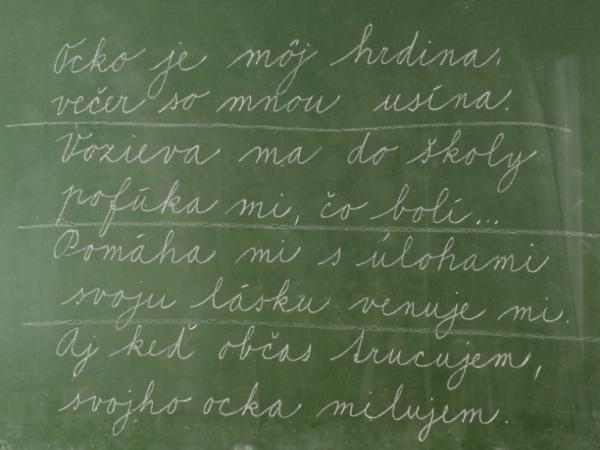 Ocko je môj hrdina,
večer so mnou usína.
Vozieva ma do školy
pofúka mi, čo bolí...
Pomáha mi s úlohami
svoju lásku venuje mi.
Aj keď občas trucujem,
svojho ocka milujem.